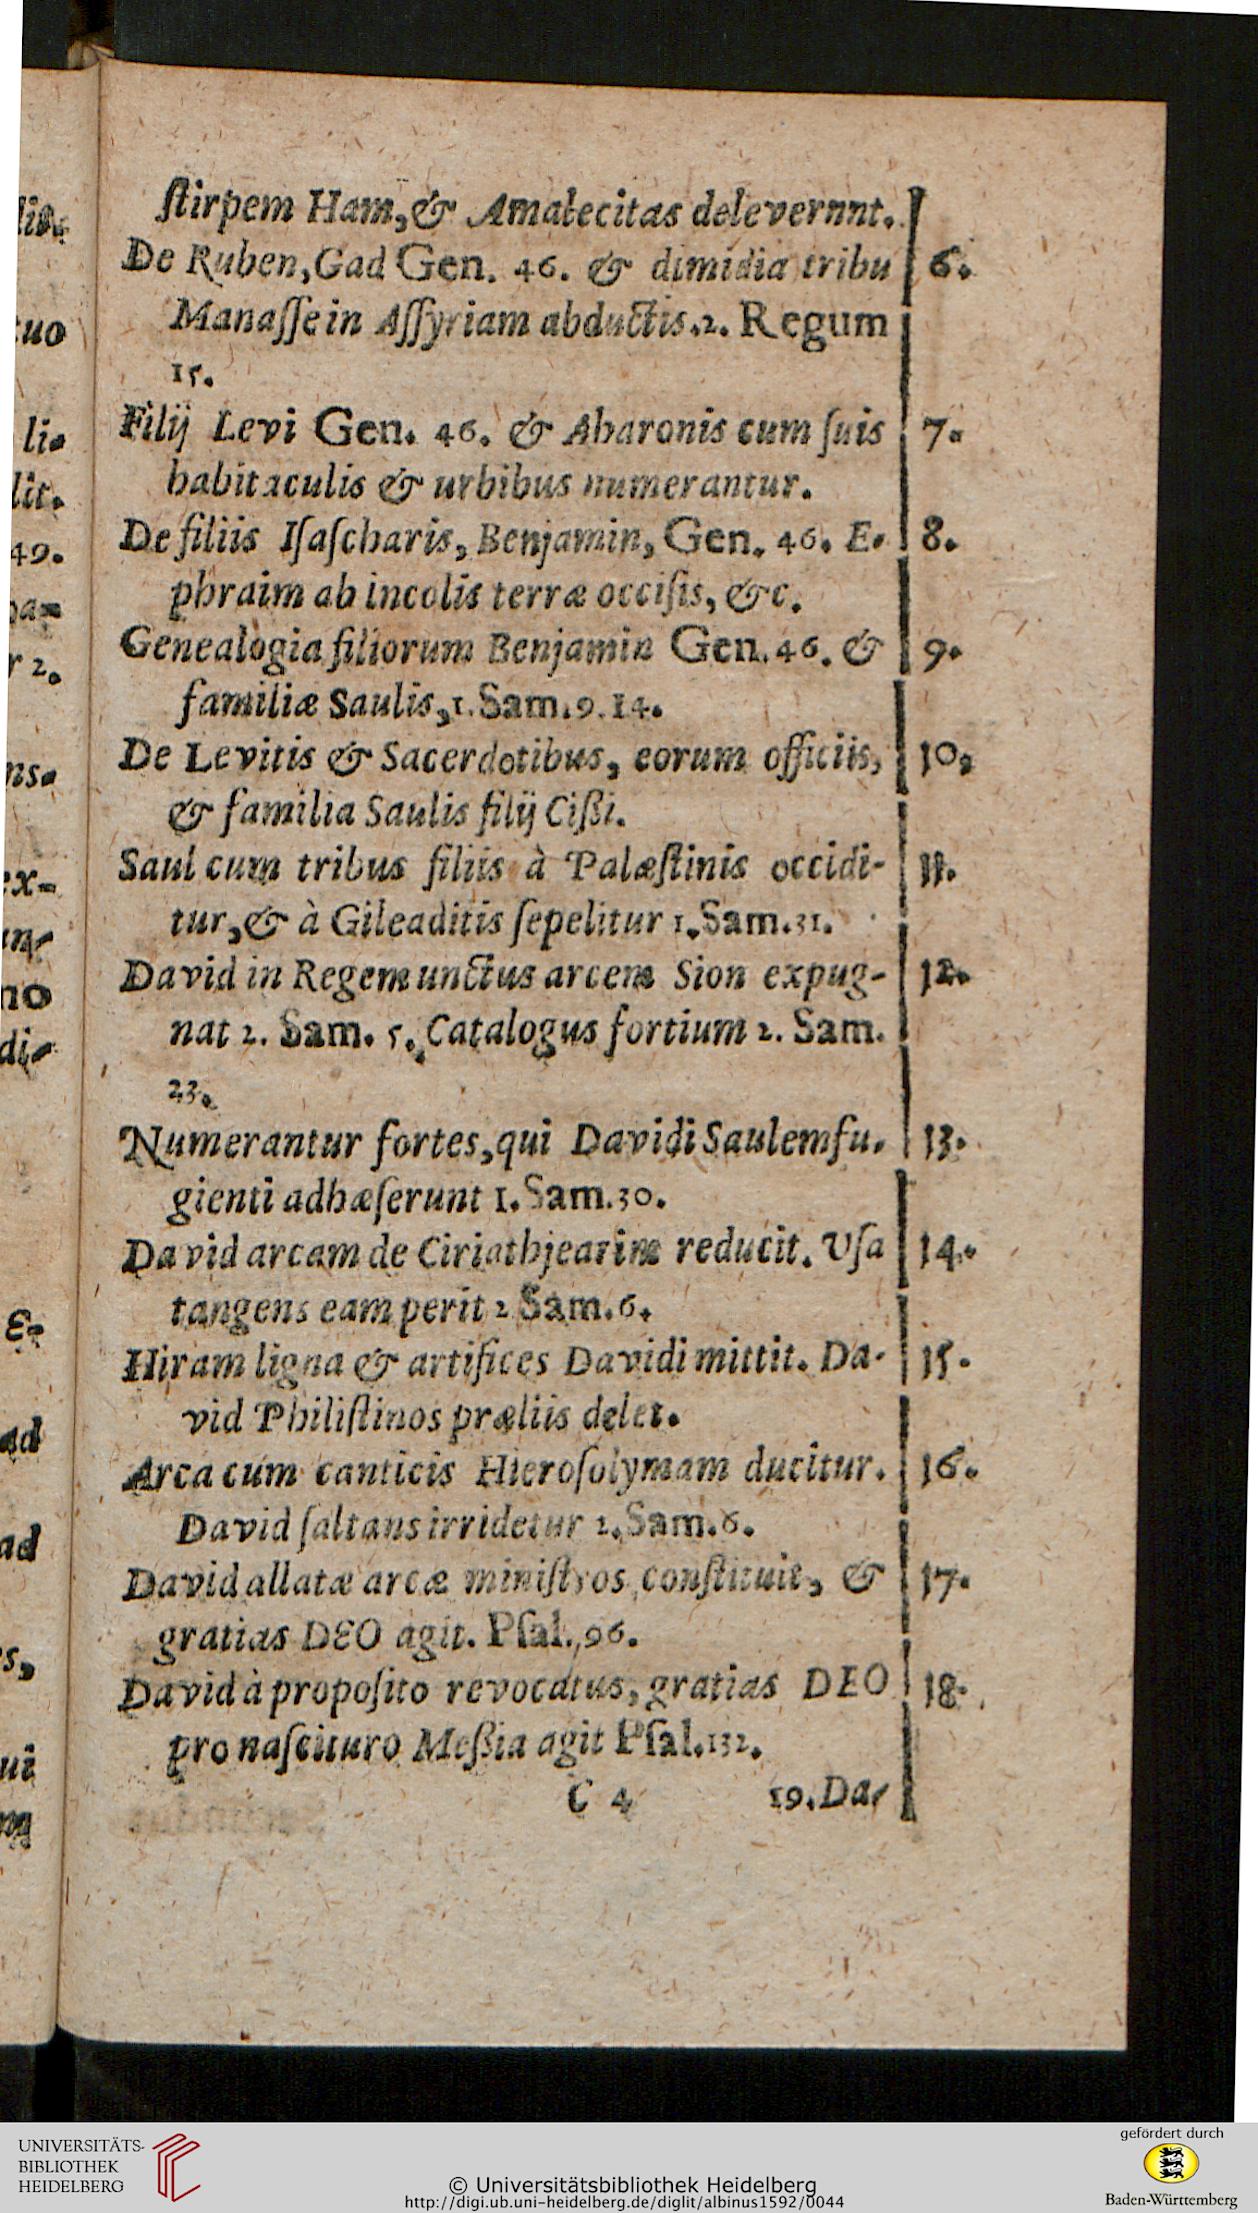 ſtirpem Ham, & Amalecitas delevernnt.
De Ruben, Gad Gen. 46. & dimidia tribu 6.
Manaſſe in Aſſyriam abductis. 2. Regum
15.
Filij Levi Gen. 46. & Aharonis cum ſuis 7.
habitaculis & urbibus numerantur.
De filiis Iſaſcharis, Benjamin, Gen. 46. E- 8.
phraim ab incolis terræ occiſis, &c.
Genealogia filiorum Benjamin Gen. 46. & 9.
familiæ Saulis, 1. Sam. 9. 14.
De Levitis & Sacerdotibus, eorum officiis, 10.
& familia Saulis filij Cißi.
Saul cum tribus filiis à Palæſtinis occidi- 11.
tur, & à Gileaditis ſepelitur 1. Sam. 31.
David in Regem unctus arcem Sion expug- 12.
nat 2. Sam. 5. Catalogus fortium 2. Sam.
23.
Numerantur fortes, qui Davidi Saulem fu- 13.
gienti adhæſerunt 1. Sam. 30.
David arcam de Ciriathjearim reducit. Vſa 14.
tangens eam perit 2 Sam. 6.
Hiram ligna & artifices Davidi mittit. Da- 15.
vid Philiſtinos præliis delet.
Arca cum canticis Hieroſolymam ducitur. 16.
David ſaltans irridetur 2. Sam. 6.
David allatæ arcæ miniſtros conſtituit, & 17.
gratias DEO agit. Pſal. 96.
David à propoſito revocatus, gratias DEO 18.
pro naſcituro Meßia agit Pſal. 132.
C 4 19. Da-
tuo
li-
lit.
49.
ns-
ex-
no
di-
ad
ad
UNIVERSITÄTS-
BIBLIOTHEK
HEIDELBERG
© Universitätsbibliothek Heidelberg
http://digi.ub.uni-heidelberg.de/diglit/albinus1592/0044
gefördert durch
Baden-Württemberg